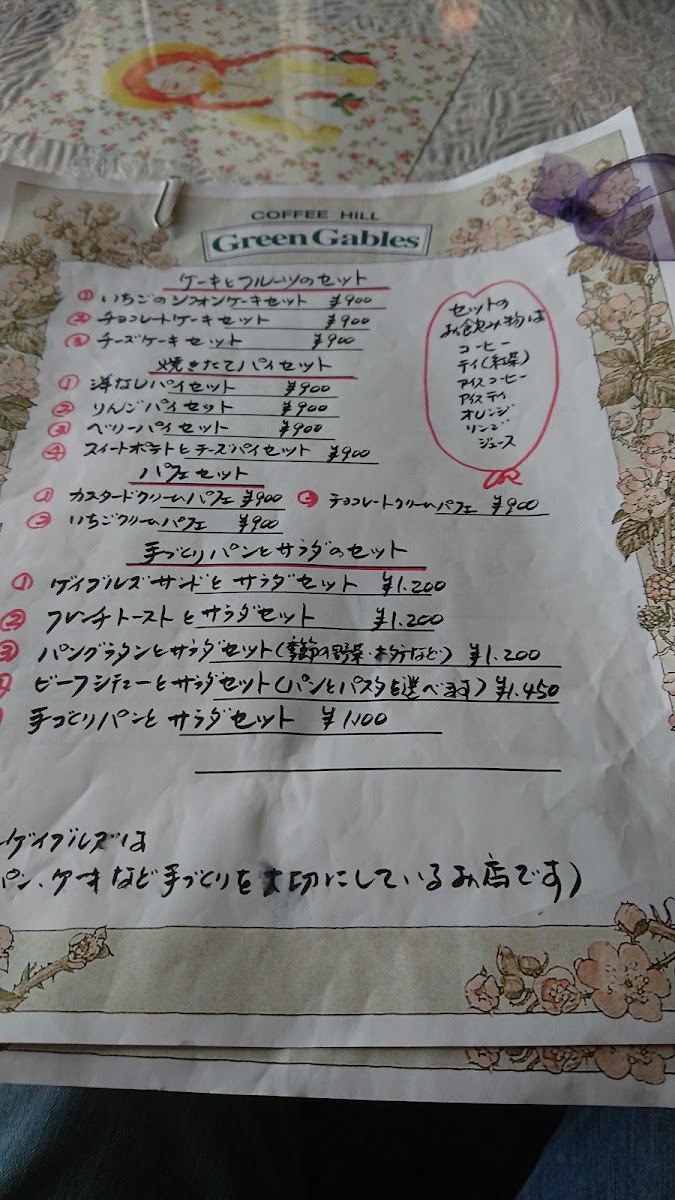 COFFEE HILL
Green Gables
ケーキとフルーツのセット
① いちごのシフォンケーキセット ¥900
② チョコレートケーキセット ¥900
③ チーズケーキセット ¥900
焼きたてパイセット
① 洋なしパイセット ¥900
② りんごパイセット ¥900
③ ベリーパイセット ¥900
④ スイートポテトとチーズパイセット ¥900
パフェセット
① カスタードクリームパフェ ¥900 ② チョコレートクリームパフェ ¥900
③ いちごクリームパフェ ¥900
手づくりパンとサラダのセット
① ゲイブルズサンドとサラダセット ¥1.200
② フレンチトーストとサラダセット ¥1.200
③ パングラタンとサラダセット(季節の野菜・ホタテなど) ¥1.200
ビーフシチューとサラダセット(パンとパスタを選べます) ¥1.450
手づくりパンとサラダセット ¥1.100
セットの
お飲み物は
コーヒー
ティ(紅茶)
アイスコーヒー
アイスティ
オレンジ
リンゴ
ジュース
ゲイブルズは
パン、ケーキなど手づくりを大切にしているお店です)